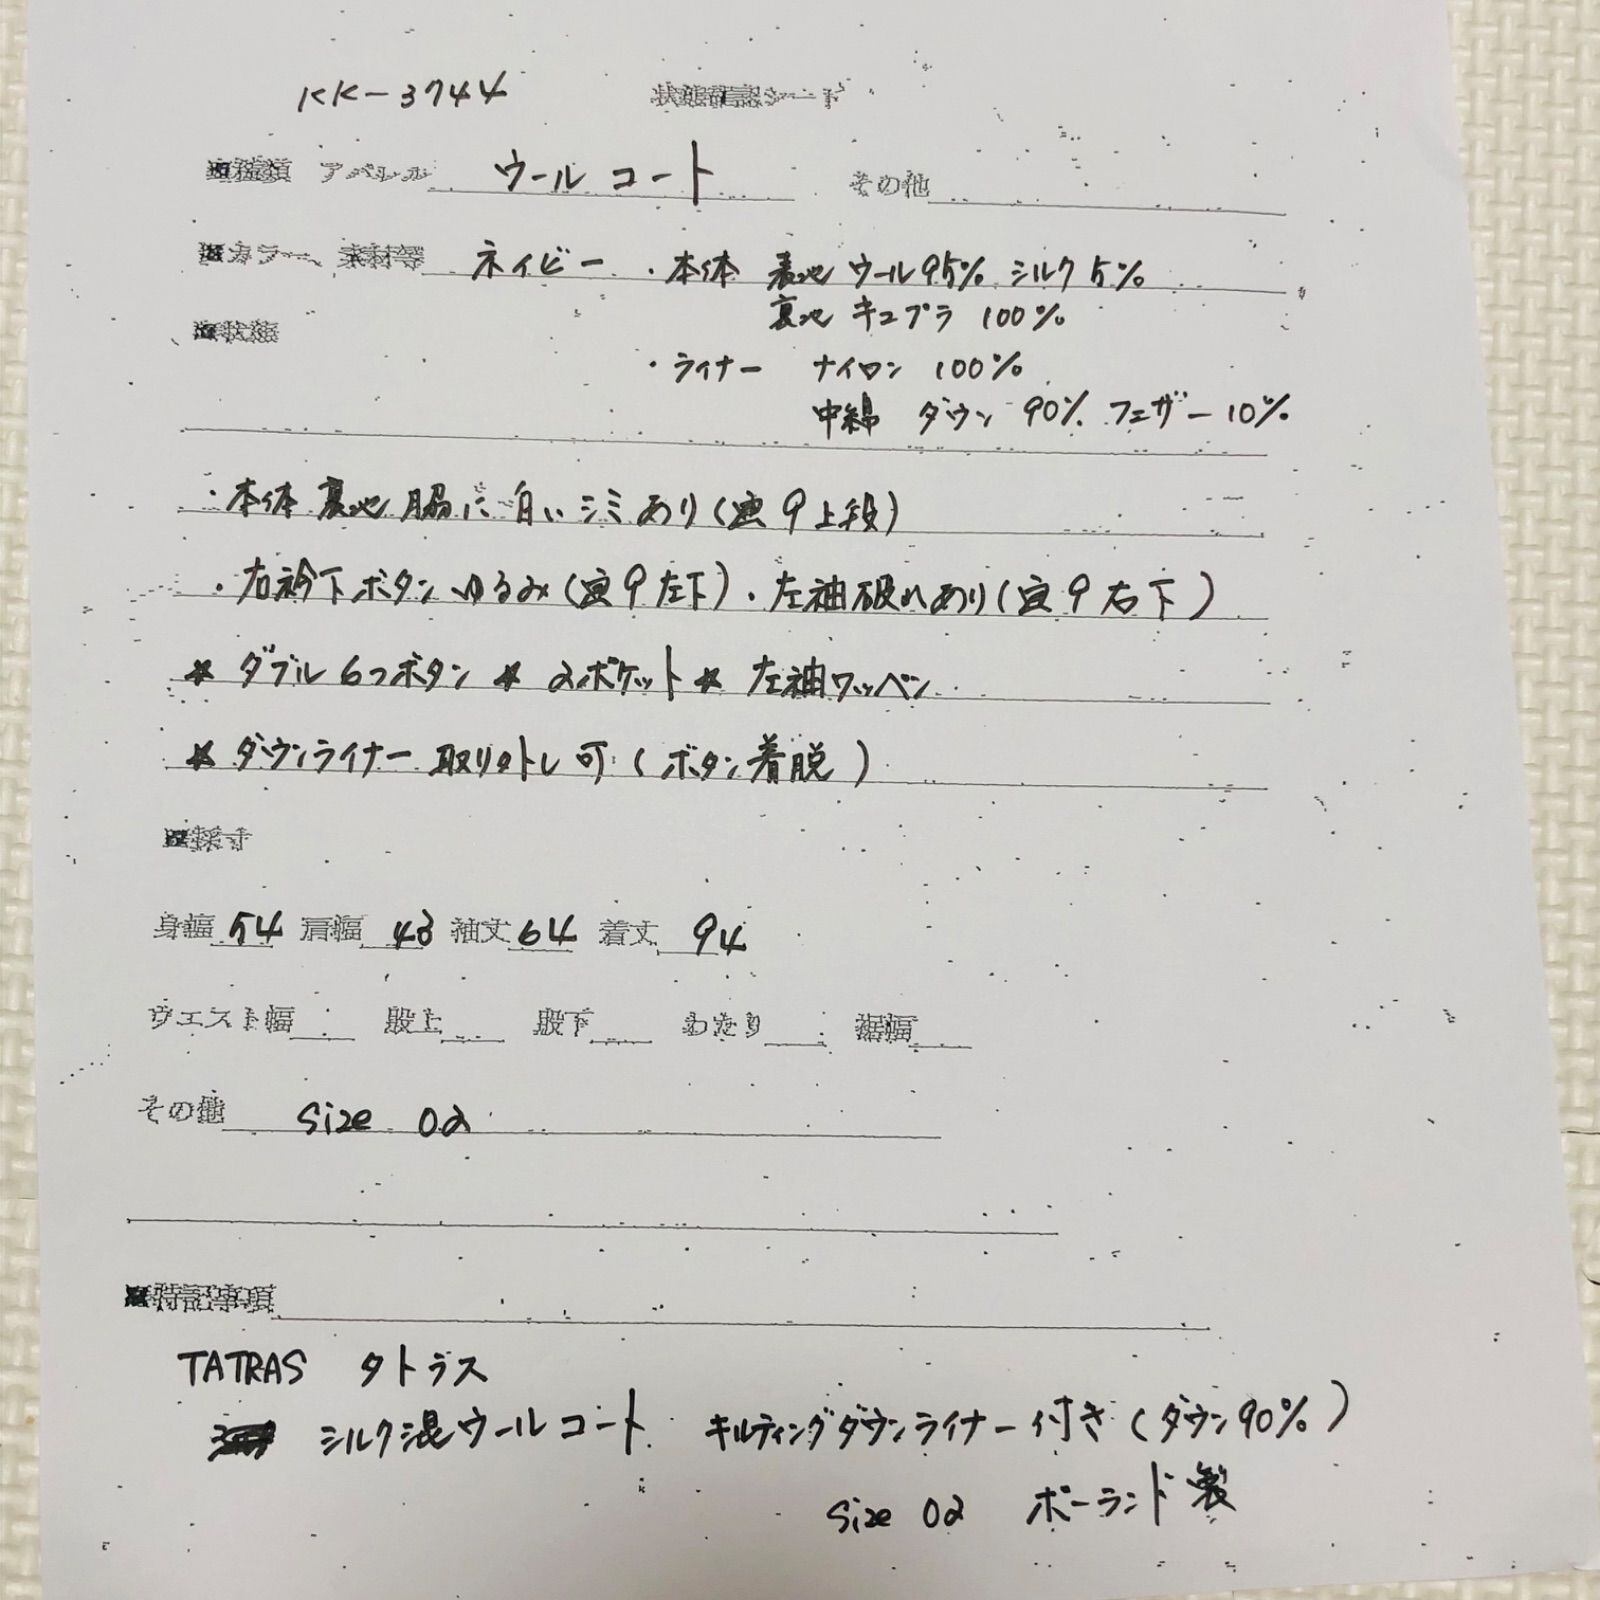 KK-3744 状態確認シート
■種類 アパレル ウールコート その他
■カラー、素材等 ネイビー ・本体 表地 ウール95% シルク5%
裏地 キュプラ 100%
■状態
・ライナー ナイロン 100%
中綿 ダウン 90% フェザー 10%
・本体裏地脇に白いシミあり(画9上段)
・右衿下ボタンゆるみ(画9左下)・左袖破れあり(画9右下)
★ダブル6つボタン ★2ポケット ★左袖ワッペン
★ダウンライナー取り外し可(ボタン着脱)
■採寸
身幅 54 肩幅 43 袖丈 64 着丈 94
ウエスト幅 股上 股下 わたり 裾幅
その他 size 02
■特記事項
TATRAS タトラス
シルク混ウールコート キルティングダウンライナー付き(ダウン90%)
size 02 ポーランド製